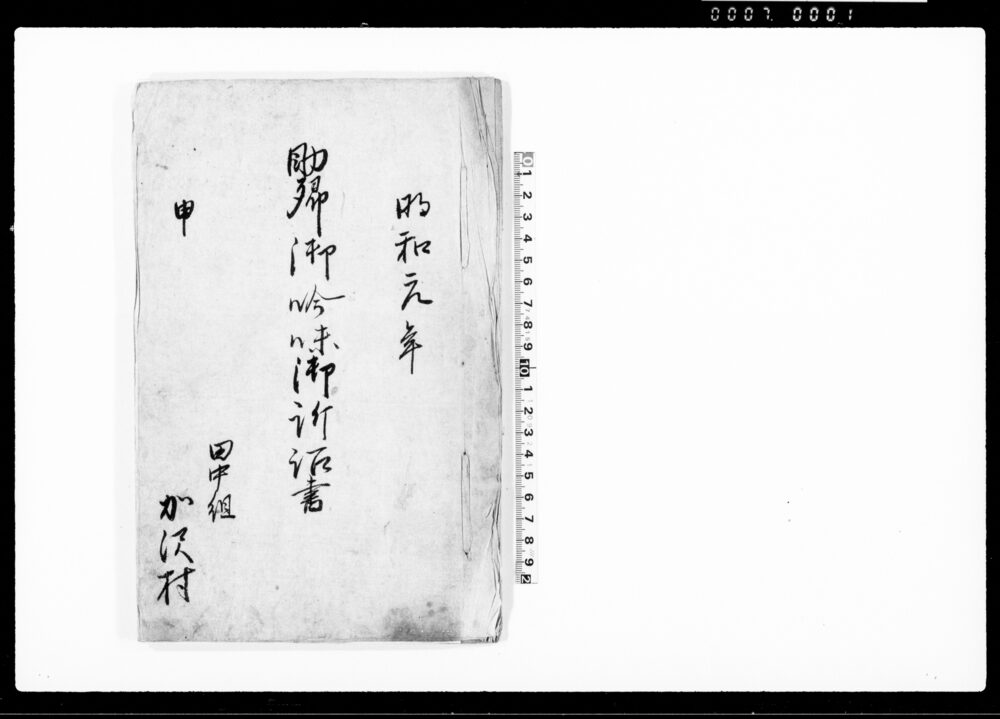 0007. 0001
明和元年
助郷御吟味御訴詔書
申
田中組
加沢村
0 1 2 3 4 5 6 7 8 9 10 1 2 3 4 5 6 7 8 9 2